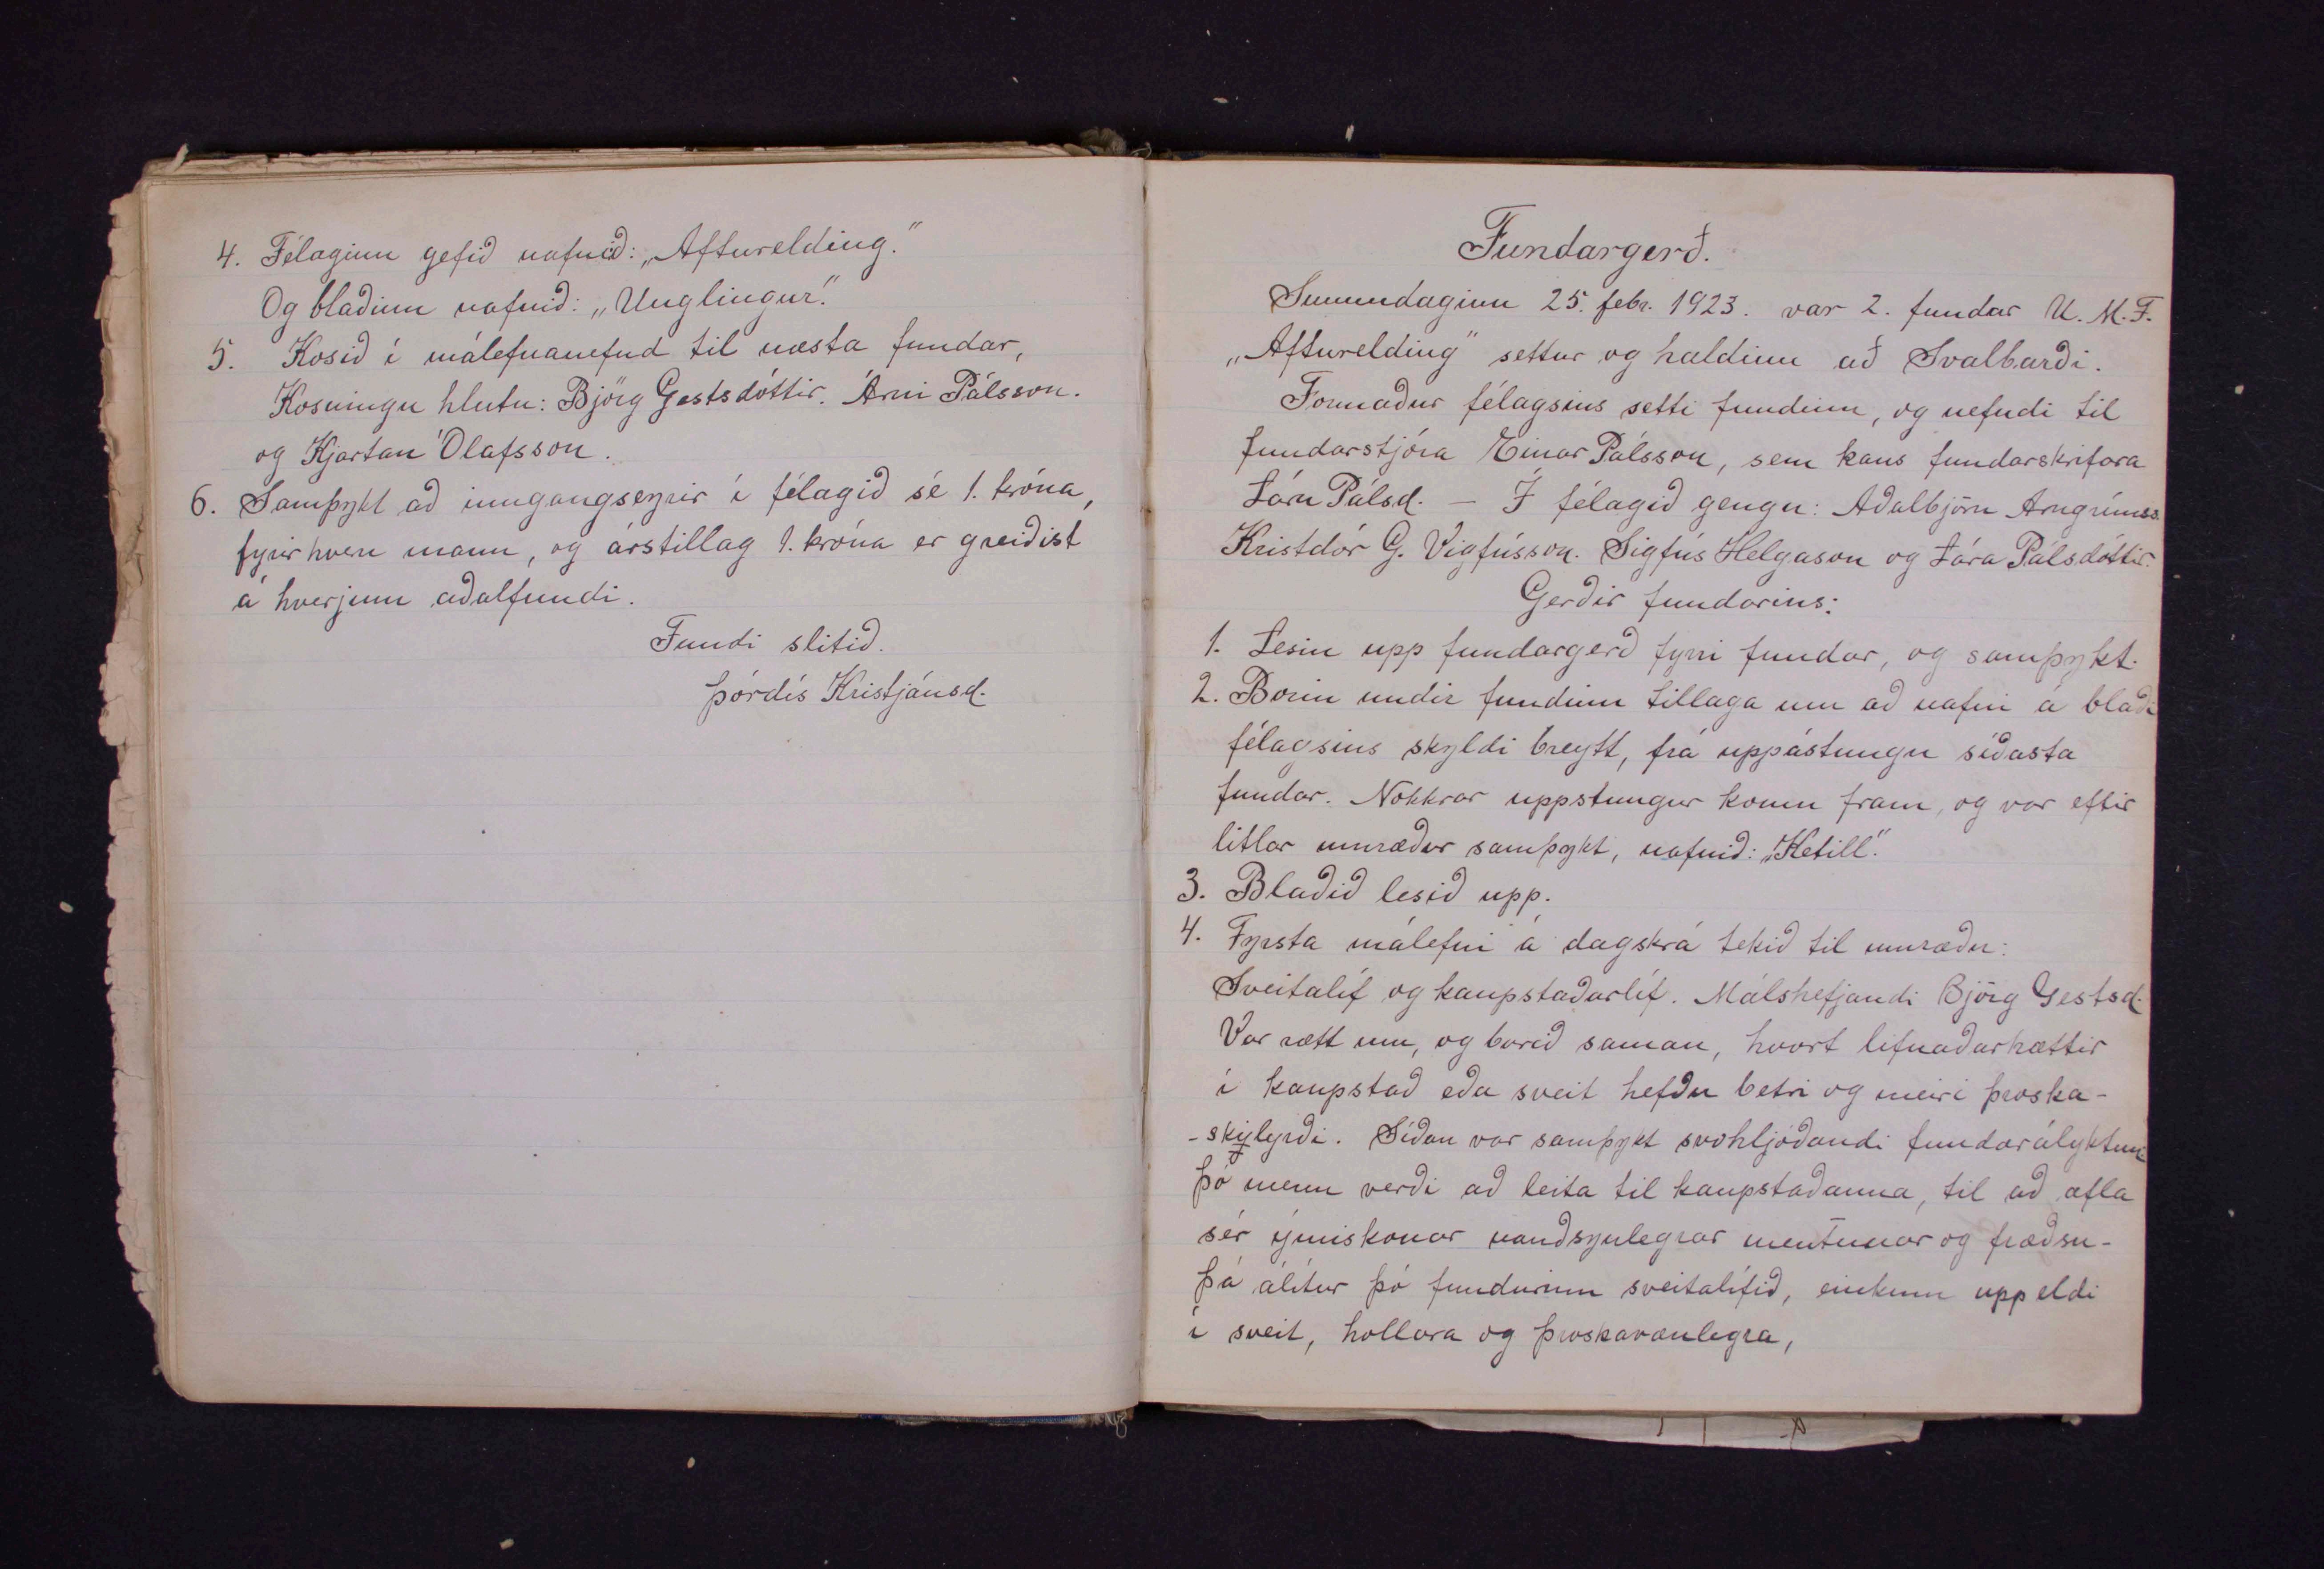 4. Félaginu gefið nafnið: „Afturelding."
Og blaðinu nafnið: „Unglingur".
5. Kosið í málefnanefnd til næsta fundar,
Kosningu hlutu: Björg Gestsdóttir. Árni Pálsson.
og Kjartan Ólafsson.
6. Samþykt að inngangseyrir í félagið sé 1. króna,
fyrir hvern mann, og árstillag 1. króna er greiðist
á hverjum aðalfundi.
Fundi slitið.
Þórdís Kristjánsd.
Fundargerð.
Sunnudaginn 25. febr. 1923. var 2. fundur U. M. F.
„Afturelding" settur og haldinn að Svalbarði.
Formaður félagsins setti fundinn, og nefndi til
fundarstjóra Einar Pálsson, sem kaus fundarskrifara
Láru Pálsd. — Í félagið gengu: Aðalbjörn Arngrímss.
Kristdór G. Vigfússon. Sigfús Helgason og Lára Pálsdóttir.
Gerðir fundarins:
1. Lesin upp fundargerð fyrri fundar, og samþykt.
2. Borin undir fundinn tillaga um að nafni á blaði
félagsins skyldi breytt, frá uppástungu síðasta
fundar. Nokkrar uppstungur komu fram, og var eftir
litlar umræður samþykt, nafnið: „Ketill".
3. Blaðið lesið upp.
4. Fyrsta málefni á dagskrá tekið til umræðu:
Sveitalíf og kaupstaðarlíf. Málshefjandi Björg Gestsd.
Var rætt um, og borið saman, hvort lifnaðarhættir
í kaupstað eða sveit hefðu betri og meiri þroska-
-skylyrði. Síðan var samþykt svohljóðandi fundarályktun:
Þó menn verði að leita til kaupstaðanna, til að afla
sér ýmiskonar nauðsynlegrar mentunar og fræðsu-
Þá álítur þó fundurinn sveitalífið, einkum uppeldi
í sveit, hollara og þroskavænlegra,